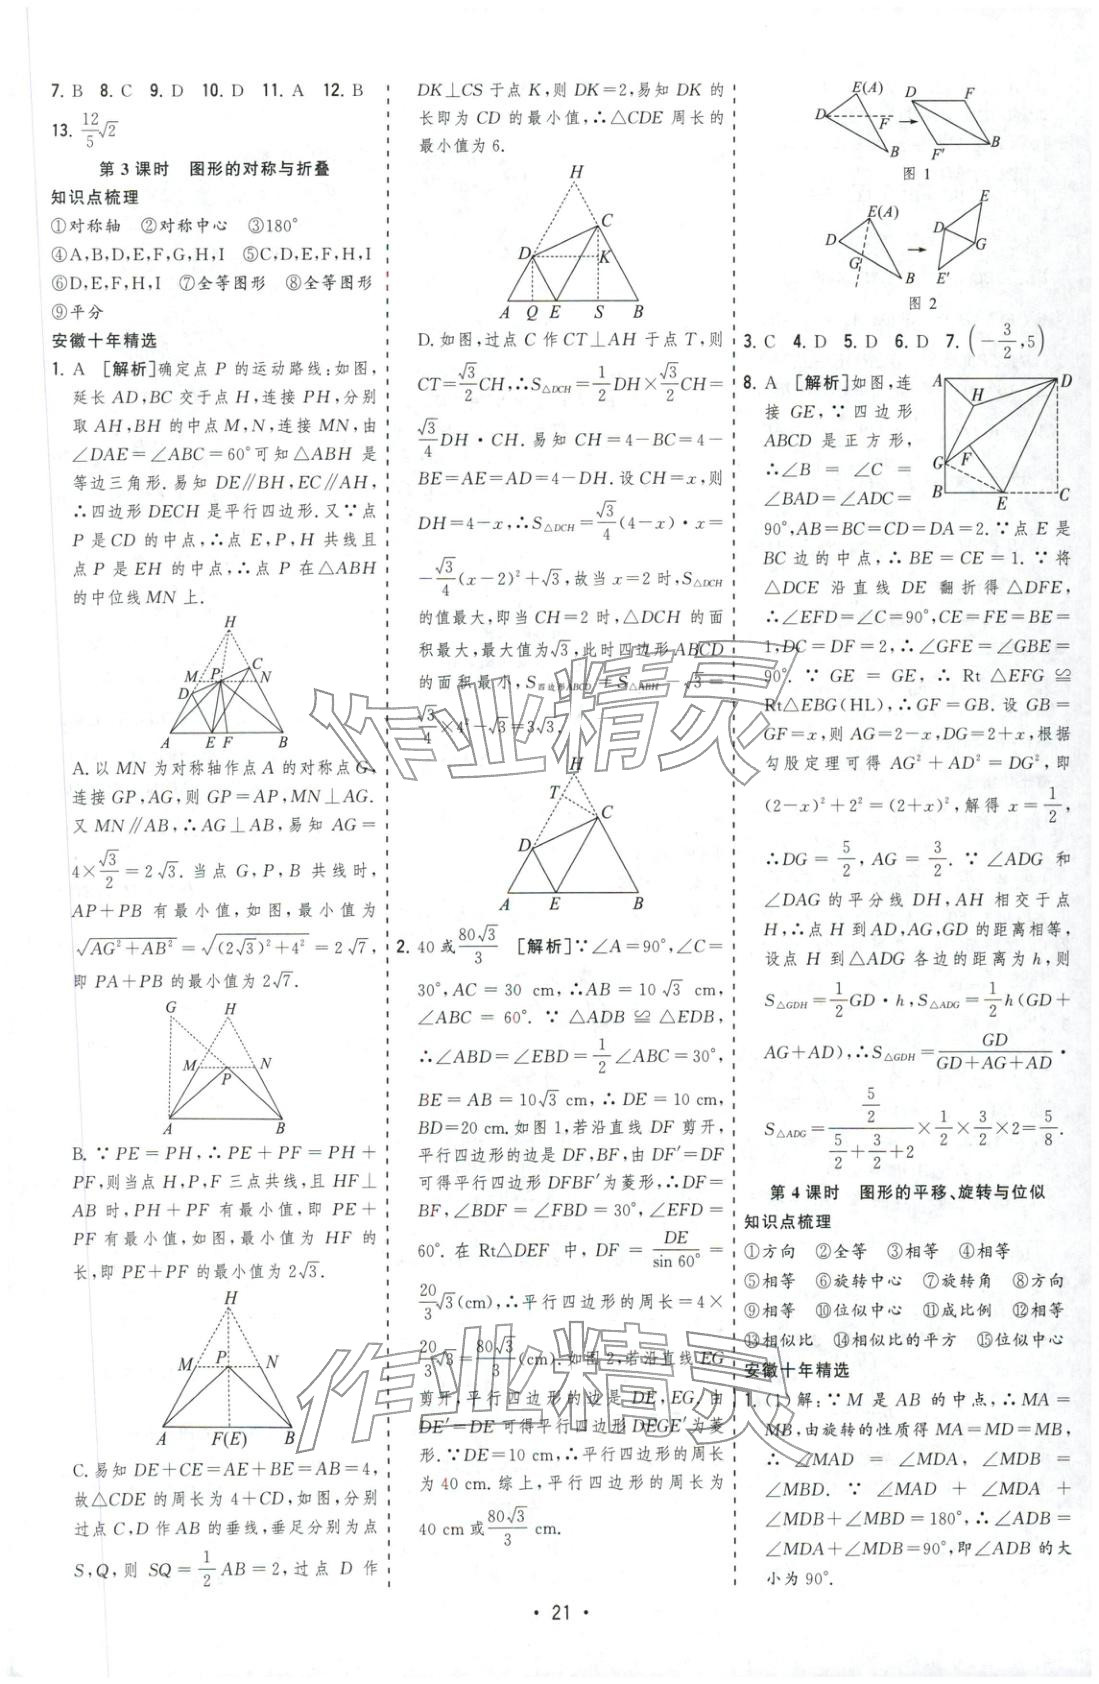 7. B 8. C 9. D 10. D 11. A 12. B
13. 12/5√2
第3课时 图形的对称与折叠
知识点梳理
①对称轴 ②对称中心 ③180°
④A,B,D,E,F,G,H,I ⑤C,D,E,F,H,I
⑥D,E,F,H,I ⑦全等图形 ⑧全等图形
⑨平分
安徽十年精选
1. A [解析]确定点 P 的运动路线:如图,
延长 AD,BC 交于点 H,连接 PH,分别
取 AH,BH 的中点 M,N,连接 MN,由
∠DAE=∠ABC=60°可知△ABH 是
等边三角形.易知 DE∥BH,EC∥AH,
∴四边形 DECH 是平行四边形.又∵点
P 是 CD 的中点,∴点 E,P,H 共线且
点 P 是 EH 的中点,∴点 P 在△ABH
的中位线 MN 上.
H
M P C N
D
A E F B
A. 以 MN 为对称轴作点 A 的对称点 G,
连接 GP,AG,则 GP=AP,MN⊥AG.
又 MN∥AB,∴AG⊥AB,易知 AG=
4×√3/2=2√3.当点 G,P,B 共线时,
AP+PB 有最小值,如图,最小值为
√(AG²+AB²)=√((2√3)²+4²)=2√7,
即 PA+PB 的最小值为 2√7.
G H
M P N
A B
B. ∵PE=PH,∴PE+PF=PH+
PF,则当点 H,P,F 三点共线,且 HF⊥
AB 时,PH+PF 有最小值,即 PE+
PF 有最小值,如图,最小值为 HF 的
长,即 PE+PF 的最小值为 2√3.
H
M P N
A F(E) B
C. 易知 DE+CE=AE+BE=AB=4,
故△CDE 的周长为 4+CD,如图,分别
过点 C,D 作 AB 的垂线,垂足分别为点
S,Q,则 SQ=1/2AB=2,过点 D 作
DK⊥CS 于点 K,则 DK=2,易知 DK 的
长即为 CD 的最小值,∴△CDE 周长的
最小值为 6.
H
C
D K
A Q E S B
D. 如图,过点 C 作 CT⊥AH 于点 T,则
CT=√3/2CH,∴S△DCH=1/2DH×√3/2CH=
√3/4DH·CH.易知 CH=4-BC=4-
BE=AE=AD=4-DH.设 CH=x,则
DH=4-x,∴S△DCH=√3/4(4-x)·x=
-√3/4(x-2)²+√3,故当 x=2 时,S△DCH
的值最大,即当 CH=2 时,△DCH 的面
积最大,最大值为√3,此时四边形 ABCD
的面积最小,S四边形ABCD=S△ABH-√3=
√3/4×4²-√3=3√3.
H
T
C
D
A E B
2. 40或80√3/3 [解析]∵∠A=90°,∠C=
30°,AC=30 cm,∴AB=10√3 cm,
∠ABC=60°.∵△ADB≌△EDB,
∴∠ABD=∠EBD=1/2∠ABC=30°,
BE=AB=10√3 cm,∴DE=10 cm,
BD=20 cm.如图 1,若沿直线 DF 剪开,
平行四边形的边是 DF,BF,由 DF'=DF
可得平行四边形 DFBF'为菱形,∴DF=
BF,∠BDF=∠FBD=30°,∠EFD=
60°.在 Rt△DEF 中,DF=DE/sin 60°=
20/3√3(cm),∴平行四边形的周长=4×
20/3√3=80√3/3(cm).如图 2,若沿直线 EG
剪开,平行四边形的边是 DE,EG.由
DE'=DE 可得平行四边形 DEGE'为菱
形.∵DE=10 cm,∴平行四边形的周长
为 40 cm.综上,平行四边形的周长为
40 cm 或80√3/3 cm.
E(A) D F
D F
B F' B
图 1
E(A) E
D D
G G
B E'
图 2
3. C 4. D 5. D 6. D 7. (-3/2,5)
8. A [解析]如图,连
接 GE,∵四边形
ABCD 是正方形,
∴∠B=∠C=
∠BAD=∠ADC=
A D
H
F
G
B E C
90°,AB=BC=CD=DA=2.∵点 E 是
BC 边的中点,∴BE=CE=1.∵将
△DCE 沿直线 DE 翻折得△DFE,
∴∠EFD=∠C=90°,CE=FE=BE=
1,DC=DF=2,∴∠GFE=∠GBE=
90°.∵GE=GE,∴Rt△EFG≌
Rt△EBG(HL),∴GF=GB.设 GB=
GF=x,则 AG=2-x,DG=2+x,根据
勾股定理可得 AG²+AD²=DG²,即
(2-x)²+2²=(2+x)²,解得 x=1/2,
∴DG=5/2,AG=3/2.∵∠ADG 和
∠DAG 的平分线 DH,AH 相交于点
H,∴点 H 到 AD,AG,GD 的距离相等,
设点 H 到△ADG 各边的距离为 h,则
S△GDH=1/2GD·h,S△ADG=1/2h(GD+
AG+AD),∴S△GDH=GD/(GD+AG+AD)·
S△ADG=(5/2)/(5/2+3/2+2)×1/2×3/2×2=5/8.
第4课时 图形的平移、旋转与位似
知识点梳理
①方向 ②全等 ③相等 ④相等
⑤相等 ⑥旋转中心 ⑦旋转角 ⑧方向
⑨相等 ⑩位似中心 ⑪成比例 ⑫相等
⑬相似比 ⑭相似比的平方 ⑮位似中心
安徽十年精选
1. (1)解:∵M 是 AB 的中点,∴MA=
MB,由旋转的性质得 MA=MD=MB,
∴∠MAD=∠MDA,∠MDB=
∠MBD.∵∠MAD+∠MDA+
∠MDB+∠MBD=180°,∴∠ADB=
∠MDA+∠MDB=90°,即∠ADB 的大
小为 90°.
• 21 •
作业精灵
作业精灵